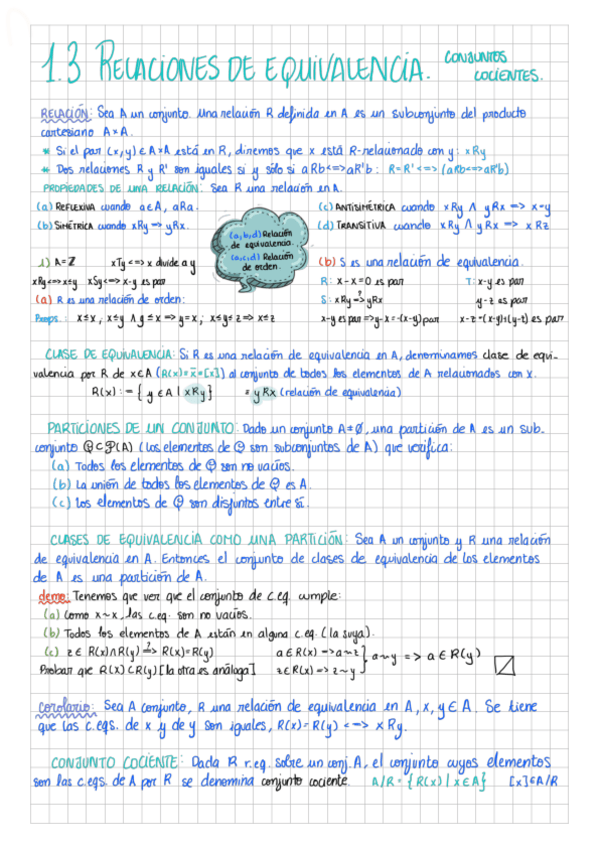 1.3 RELACIONES DE EQUIVALENCIA. CONJUNTOS COCIENTES.
RELACIÓN: Sea A un conjunto. Una relación R definida en A es un subconjunto del producto
cartesiano A×A.
* Si el par (x,y)∈A×A está en R, diremos que x está R-relacionado con y: xRy
* Dos relaciones R y R' son iguales si y sólo si aRb<=>aR'b : R=R'<=> (aRb<=>aR'b)
PROPIEDADES DE UNA RELACIÓN: Sea R una relación en A.
(a) REFLEXIVA cuando a∈A, aRa.
(b) SIMÉTRICA cuando xRy => yRx.
(a,b,d) Relación
de equivalencia.
(a,c,d) Relación
de orden.
(c) ANTISIMÉTRICA cuando xRy ∧ yRx => x=y
(d) TRANSITIVA cuando xRy ∧ yRx => x Rz
1) A=Z xTy <=> x divide a y
xRy<=>x≤y xSy<=> x-y es par
(a) R es una relación de orden:
x≤x, x≤y ∧ y≤x => y=x; x≤y≤z=> x≤z
(b) S es una relación de equivalencia.
R: x-x=0 es par T: x-y es par
S: xRy ?=> yRx y-z es par
x-y es par => y-x=-(x-y) par x-z=(x-y)+(y-z) es par
CLASE DE EQUIVALENCIA: Si R es una relación de equivalencia en A, denominamos clase de equi-
valencia por R de x∈A (R(x)=x̄=[x]) al conjunto de todos los elementos de A relacionados con x.
R(x) := { y∈A | xRy} = yRx (relación de equivalencia)
PARTICIONES DE UN CONJUNTO: Dado un conjunto A≠∅, una partición de A es un sub-
conjunto Q⊂P(A) (los elementos de Q son subconjuntos de A) que verifica:
(a) Todos los elementos de Q son no vacíos.
(b) La unión de todos los elementos de Q es A.
(c) Los elementos de Q son disjuntos entre sí.
CLASES DE EQUIVALENCIA COMO UNA PARTICIÓN: Sea A un conjunto y R una relación
de equivalencia en A. Entonces el conjunto de clases de equivalencia de los elementos
de A es una partición de A.
demo: Tenemos que ver que el conjunto de c.eq. cumple:
(a) Como x~x, las c.eq. son no vacíos.
(b) Todos los elementos de A están en alguna c.eq. (la suya).
(c) z∈ R(x)∩R(y) ?=> R(x)=R(y) a∈R(x) => a~z } a~y => a∈R(y)
Probar que R(x)⊂R(y) [la otra es análoga] z∈R(x) => z~y
Corolario: Sea A conjunto, R una relación de equivalencia en A, x, y∈A. Se tiene
que las c.eqs. de x y de y son iguales, R(x)=R(y) <=> x Ry.
CONJUNTO COCIENTE: Dada R r.eq. sobre un conj. A, el conjunto cuyos elementos
son las c.eqs. de A por R se denomina conjunto cociente. A/R = {R(x) | x∈A} [x]∈A/R